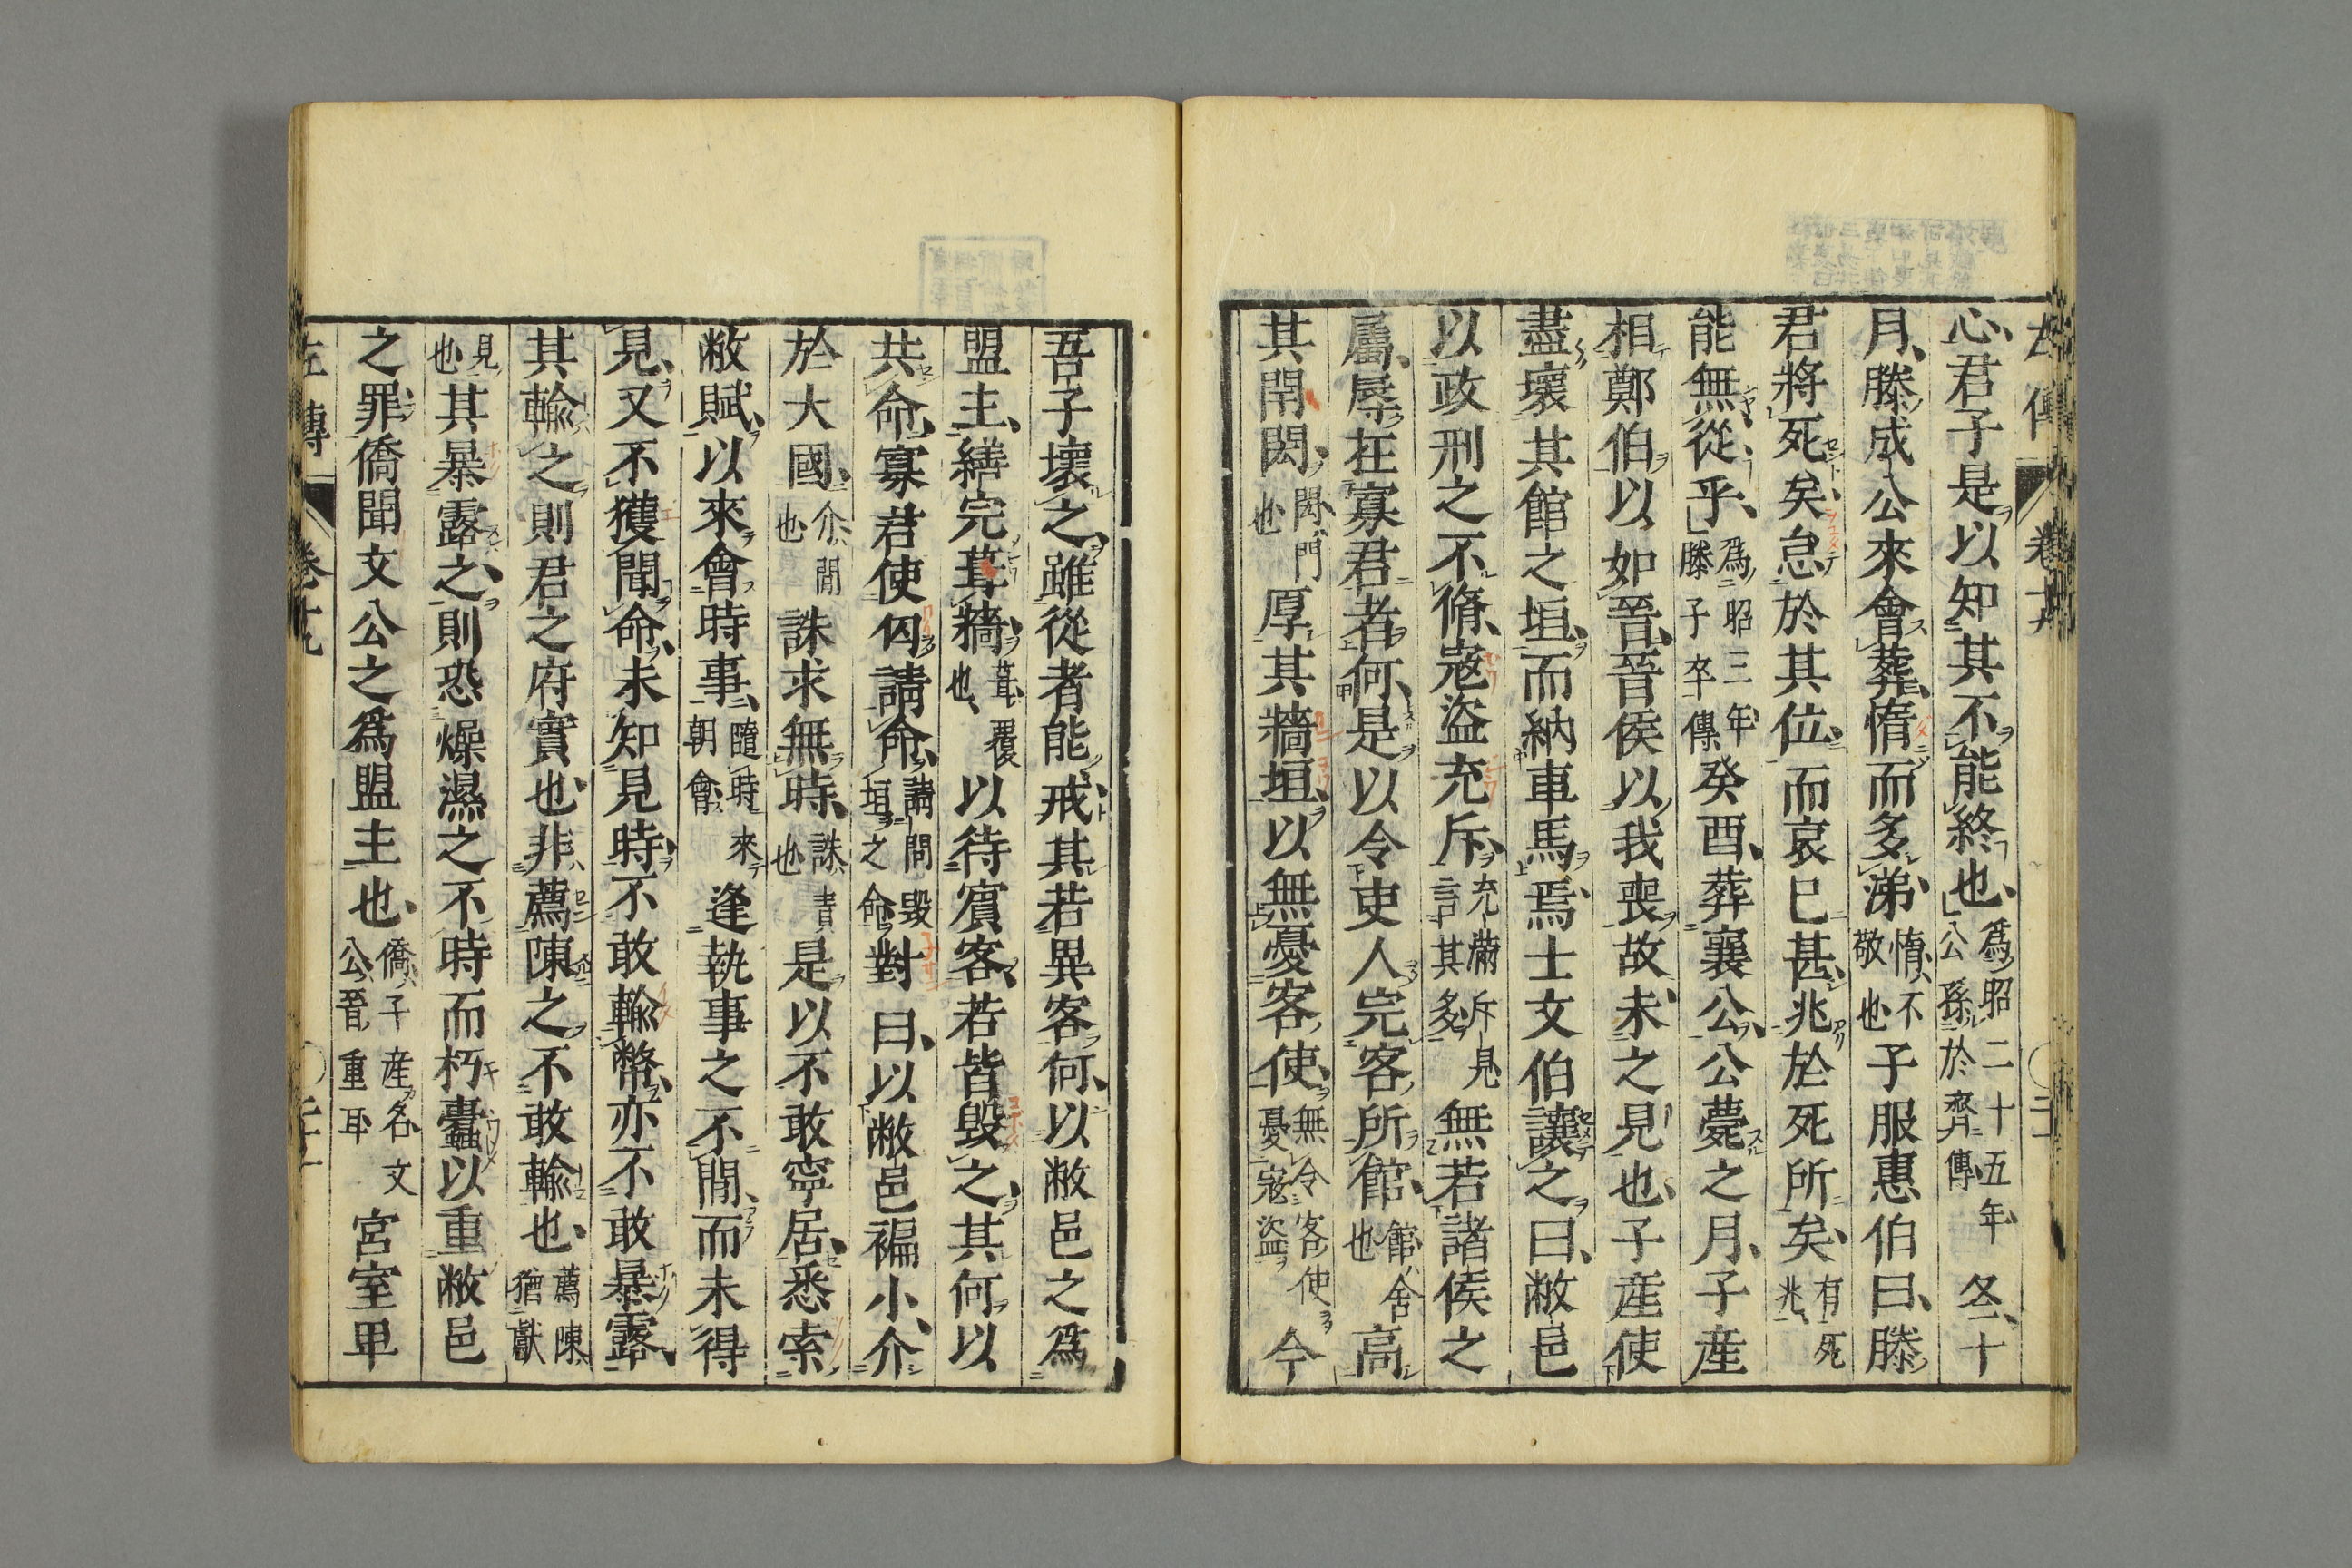 心君子是以知其不能終也爲昭二十五年公孫於齊傳冬十
月滕成公來會葬惰而多涕惰不敬也子服惠伯曰滕
君將死矣怠於其位而哀已甚兆於死所矣有死兆
能無從乎爲昭三年滕子卒傳癸酉葬襄公公薨之月子産
相鄭伯以如晉晉侯以我喪故未之見也子産使
盡壞其館之垣而納車馬焉士文伯讓之曰敝邑
以政刑之不脩寇盜充斥充滿斥見言其多無若諸侯之
屬辱在寡君者何是以令吏人完客所館館舍也高
其閈閎閎門也厚其牆垣以無憂客使無令客使憂寇盜今
吾子壞之雖從者能戒其若異客何以敝邑之爲
盟主繕完葺牆葺覆也以待賓客若皆毀之其何以
共命寡君使匄請命請問毀垣之命對曰以敝邑褊小介
於大國介閒也誅求無時誅責也是以不敢寧居悉索
敝賦以來會時事隨時來朝會逢執事之不閒而未得
見又不獲聞命未知見時不敢輸幣亦不敢暴露
其輸之則君之府實也非薦陳之不敢輸也薦陳猶獻
見也其暴露之則恐燥濕之不時而朽蠹以重敝邑
之罪僑聞文公之爲盟主也僑子産名文公晉重耳宮室卑
左傳 卷十九